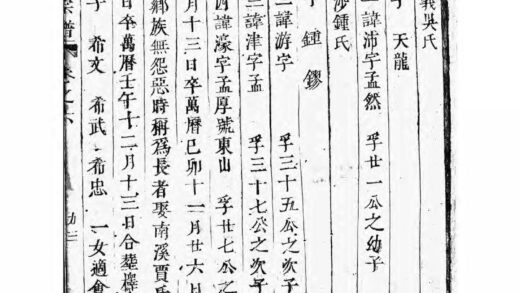 義吳氏
天龍
諱沛字孟然 孚廿一公之幼子
鍾氏
鍾鏐
諱游字 孚三十五公之次子
諱津字孟 孚三十七公之次子
諱濠字孟厚號東山 孚廿七公之
月十三日卒萬曆己卯十一月廿六日
鄉族無怨惡時稱為長者娶南溪賈氏
日卒萬曆壬午十二月十三日合塟
子 希文 希武 希忠 一女適
宗譜 卷之六